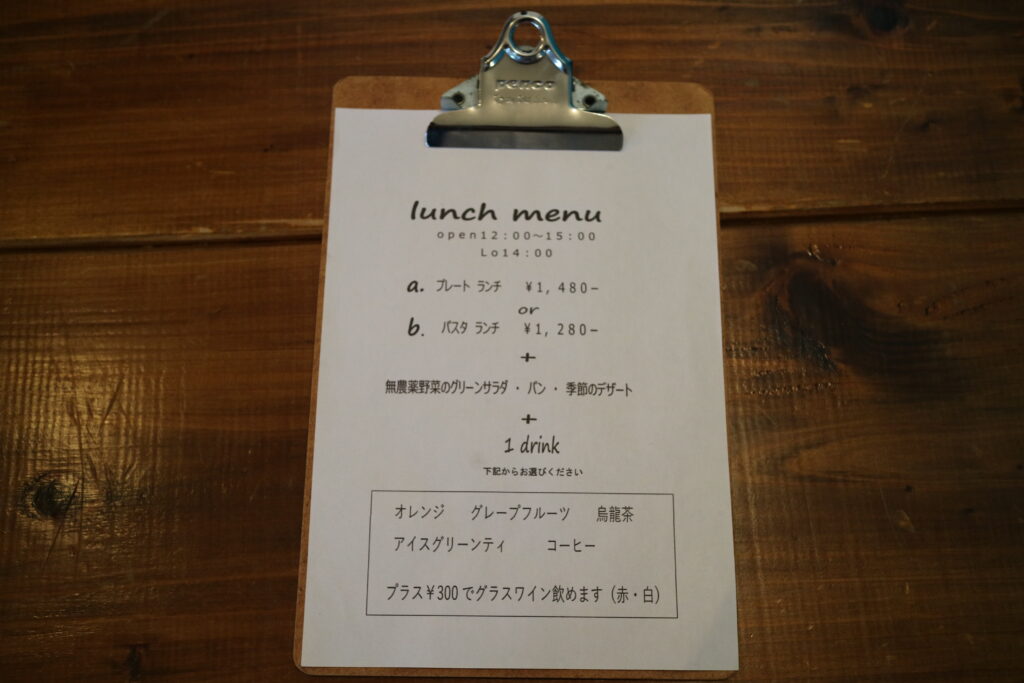 penco
lunch menu
open12:00～15:00
Lo14:00
a. プレート ランチ ¥1,480−
or
b. パスタ ランチ ¥1,280−
+
無農薬野菜のグリーンサラダ ・ パン ・ 季節のデザート
+
1 drink
下記からお選びください
オレンジ グレープフルーツ 烏龍茶
アイスグリーンティ コーヒー
プラス¥300でグラスワイン飲めます（赤・白）